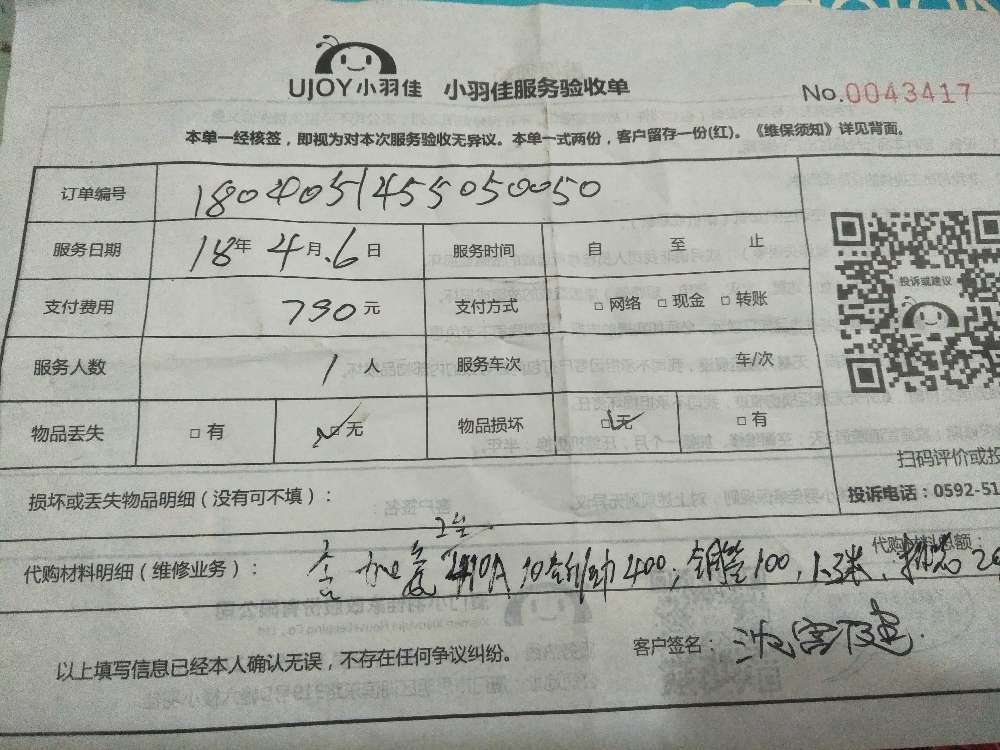 UJOY小羽佳 小羽佳服务验收单 No.0043417
本单一经核签，即视为对本次服务验收无异议。本单一式两份，客户留存一份(红)。《维保须知》详见背面。
订单编号 1804051455050050
服务日期 18年 4月.6日 服务时间 自 至 止
支付费用 790元 支付方式 □网络 □现金 □转账
服务人数 1人 服务车次 车/次
物品丢失 □有 □无 物品损坏 □无 □有
投诉或建议
扫码评价或投
投诉电话：0592-51
损坏或丢失物品明细（没有可不填）：
代购材料总额：
代购材料明细（维修业务）： 加 410A 400，铜管100，1.3米、
客户签名：
以上填写信息已经本人确认无误，不存在任何争议纠纷。